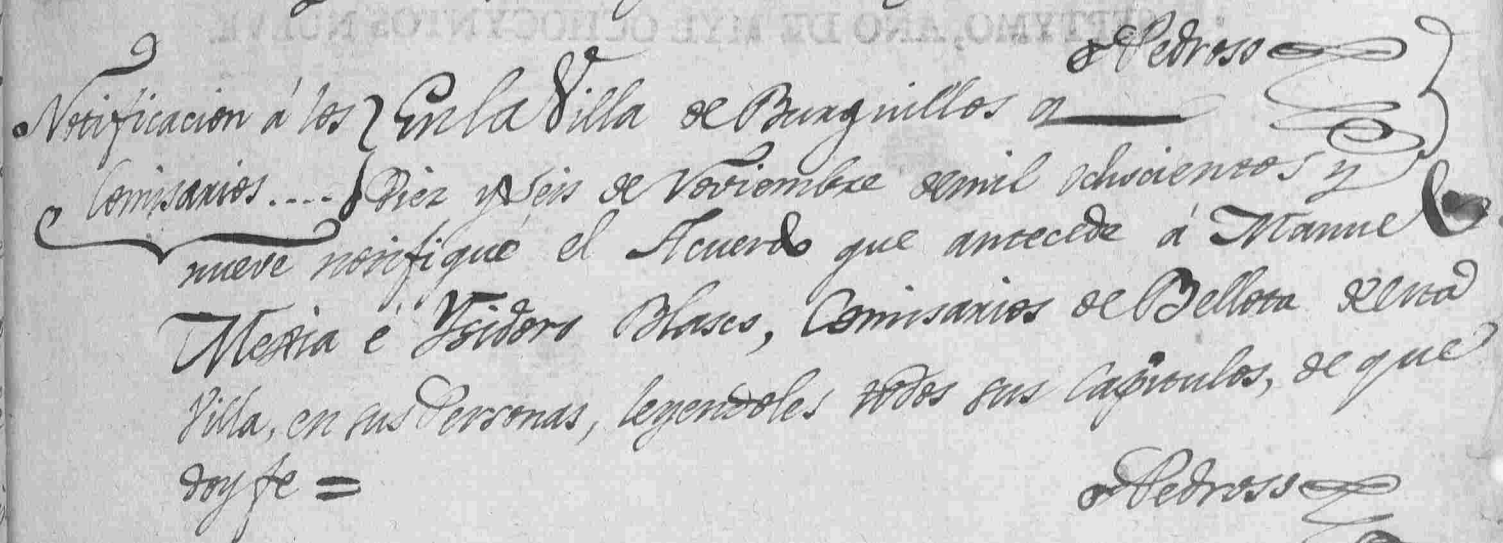 Pedroso
Notificacion á los } En la Villa de Burguillos a
Comisarios.... } Diez y Seis de Noviembre de mil ochocientos y
nueve notifiqué el Acuerdo que antecede á Manuel
Mexia é Ysidoro Blasco, Comisarios de Bellota de esta
Villa, en sus Personas, leyendoles todos sus Capitulos, de que
doy fe =
Pedroso